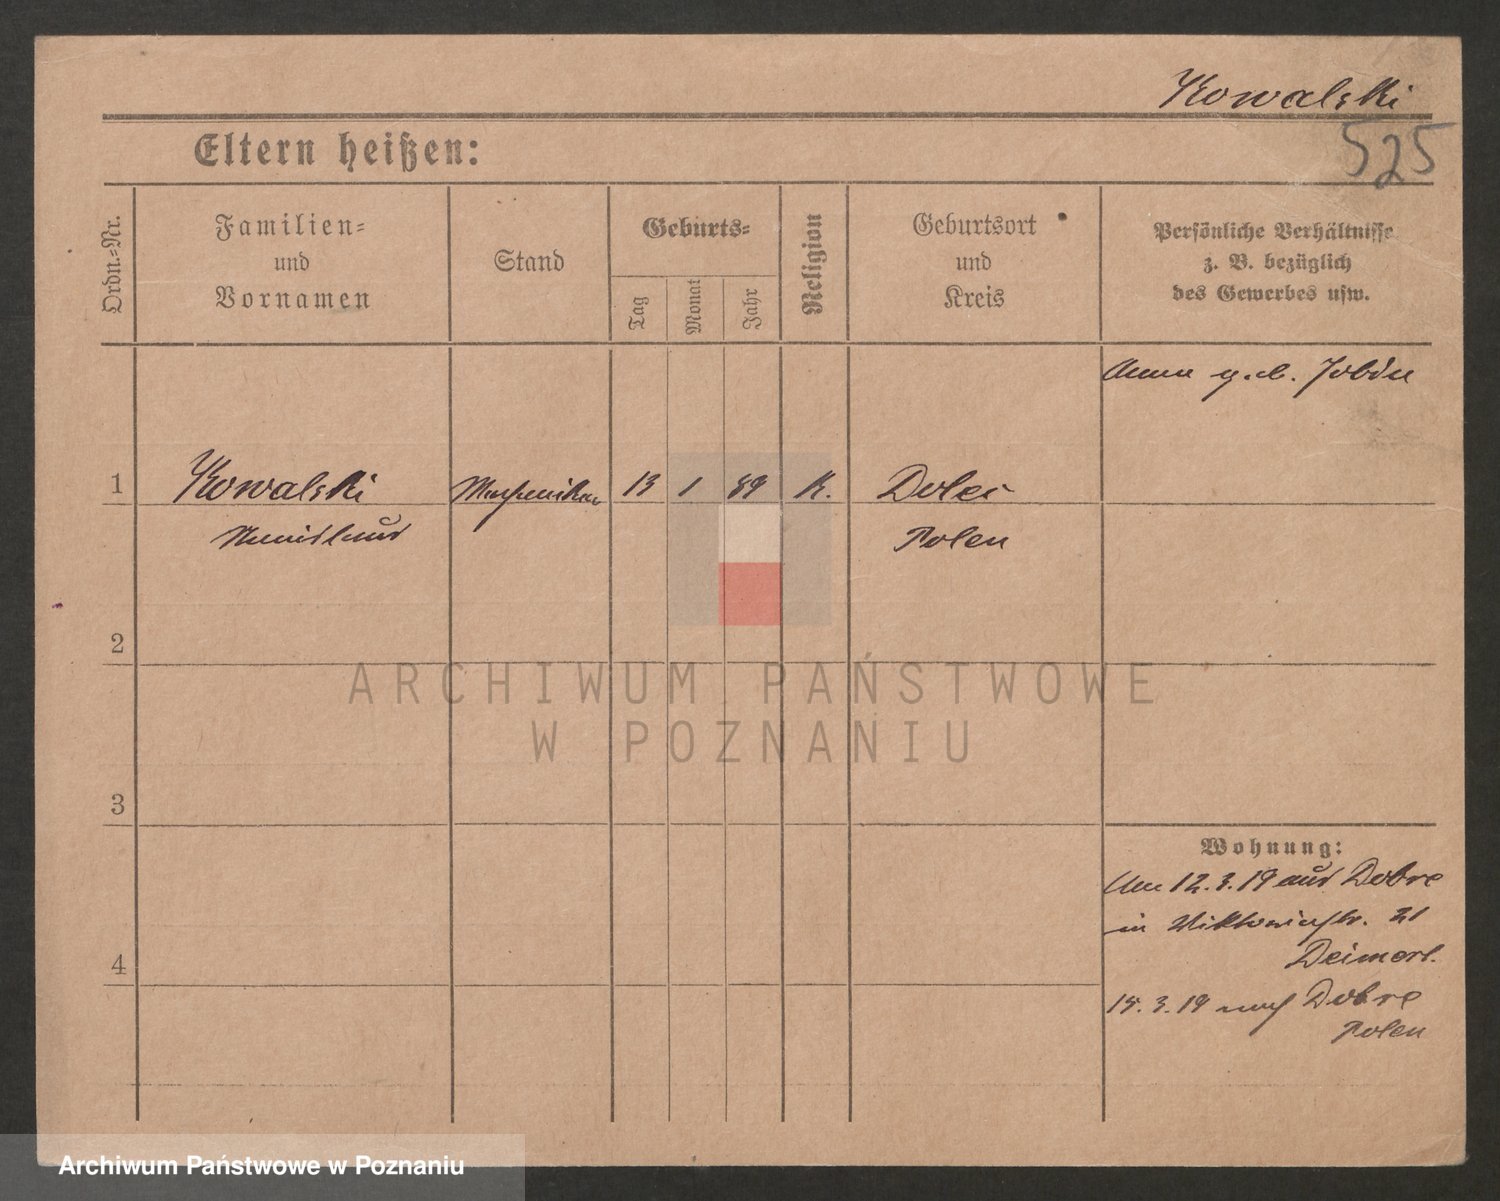 Kowalski
525
Eltern heißen:
Ordn.-Nr.
Familien-
und
Vornamen
Stand
Geburts-
Tag
Monat
Jahr
Religion
Geburtsort
und
Kreis
Persönliche Verhältnisse
z. B. bezüglich
des Gewerbes usw.
Anna geb.
1
Kowalski
13
1
89
K.
Polen
2
3
4
Wohnung:
Am 12.3.19 aus Dobre
in Viktoriastr. 21
15.3.19 nach Dobre
Polen
ARCHIWUM PAŃSTWOWE
W POZNANIU
Archiwum Państwowe w Poznaniu